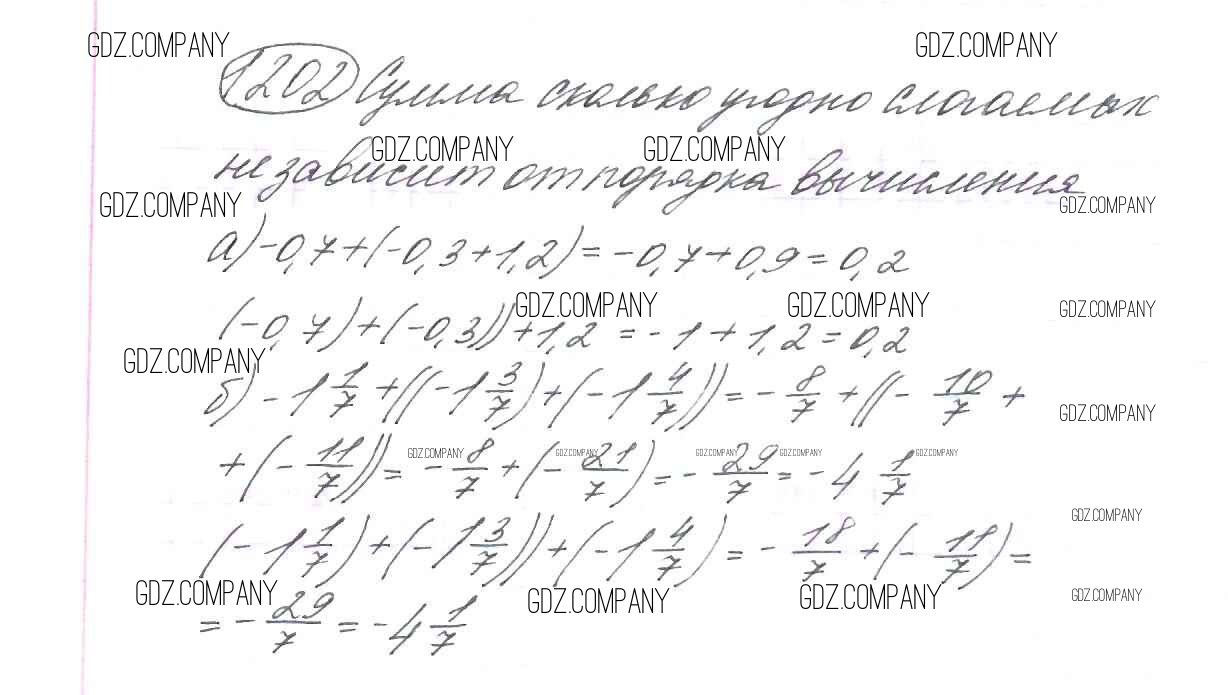 GDZ.COMPANY GDZ.COMPANY
1202 Сумма сколько угодно слагаемых
GDZ.COMPANY GDZ.COMPANY
не зависит от порядка вычисления
GDZ.COMPANY GDZ.COMPANY
а) -0,7+(-0,3+1,2)=-0,7+0,9=0,2
GDZ.COMPANY GDZ.COMPANY GDZ.COMPANY
(-0,7)+(-0,3))+1,2=-1+1,2=0,2
GDZ.COMPANY
б) -1 1/7+((-1 3/7)+(-1 4/7))=-8/7+((-10/7+
GDZ.COMPANY
+(-11/7))=-8/7+(-21/7)=-29/7=-4 1/7
GDZ.COMPANY GDZ.COMPANY GDZ.COMPANY GDZ.COMPANY GDZ.COMPANY
GDZ.COMPANY
(-1 1/7)+(-1 3/7))+(-1 4/7)=-18/7+(-11/7)=
GDZ.COMPANY GDZ.COMPANY GDZ.COMPANY GDZ.COMPANY
=-29/7=-4 1/7